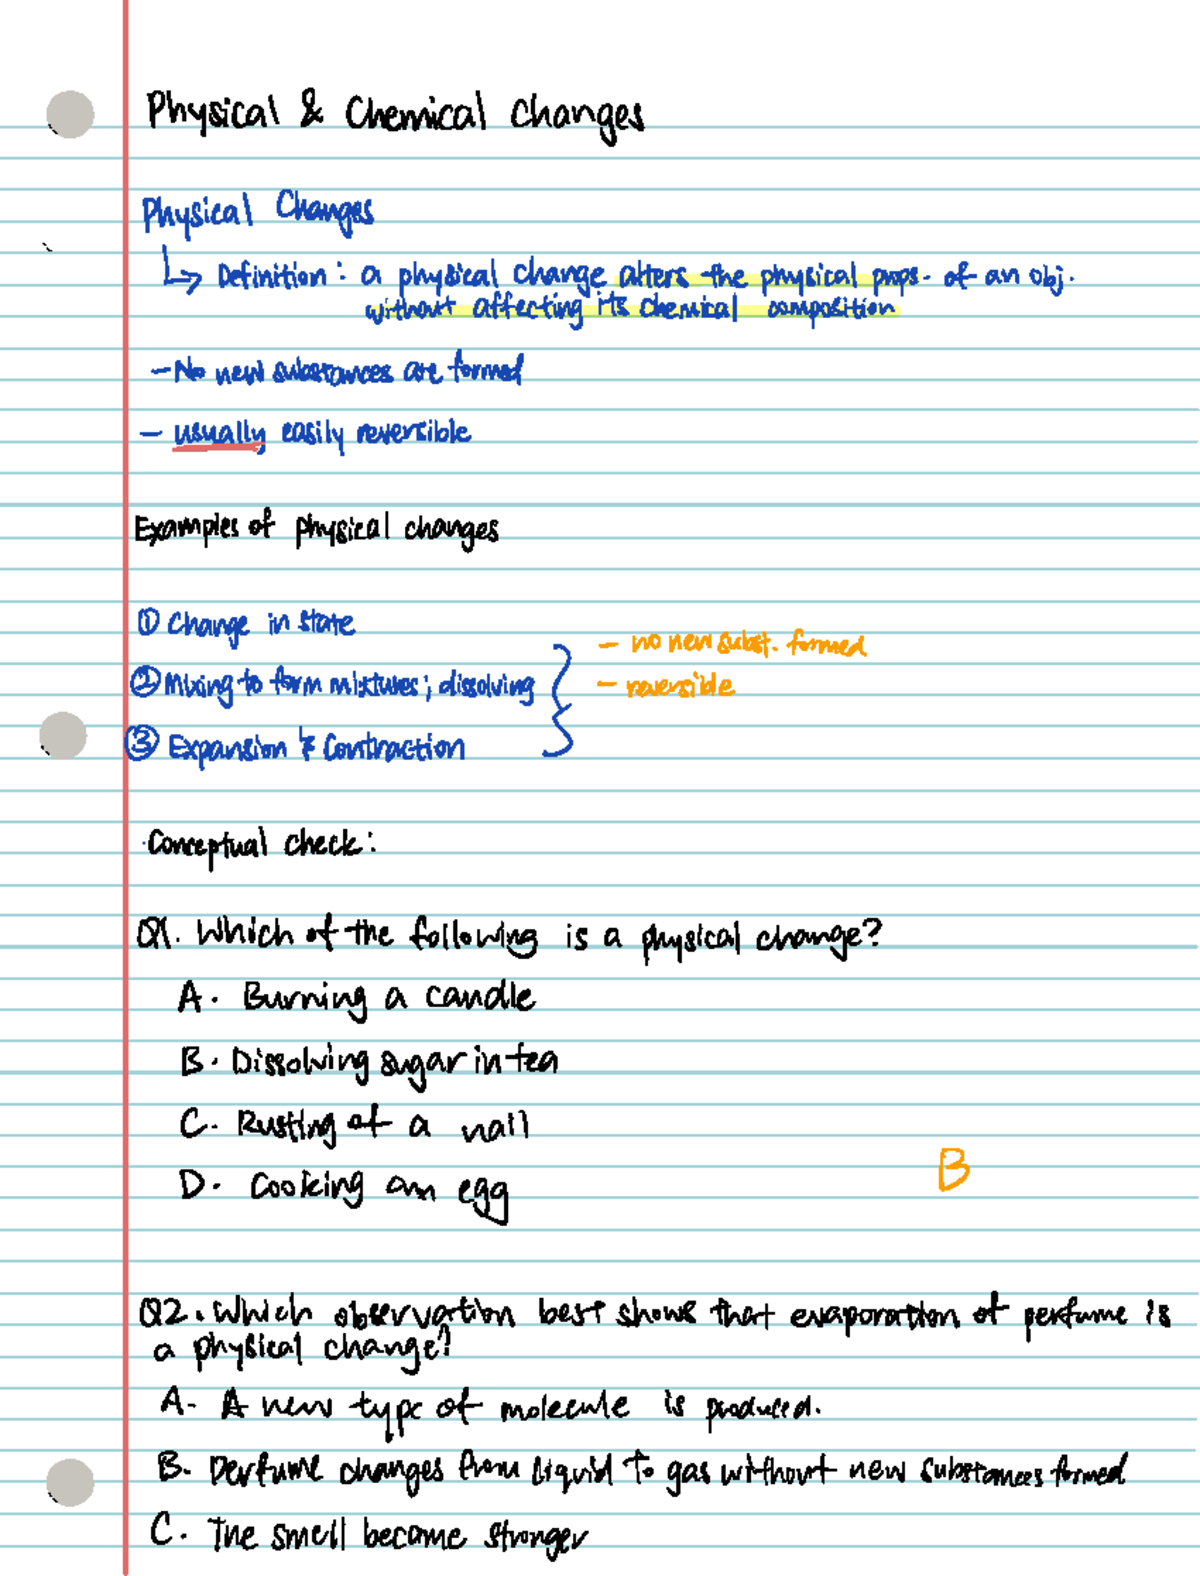 Physical & Chemical Changes
Physical Changes
↳ Definition: a physical change alters the physical props. of an obj.
without affecting its chemical composition
- No new substances are formed
- usually easily reversible
Examples of physical changes
① Change in state
- no new subst. formed
② Mixing to form mixtures; dissolving
- reversible
③ Expansion & Contraction
Conceptual check:
Q1. Which of the following is a physical change?
A. Burning a candle
B. Dissolving sugar in tea
C. Rusting of a nail
D. Cooking an egg
B
Q2. Which observation best shows that evaporation of perfume is
a physical change?
A. A new type of molecule is produced.
B. Perfume changes from liquid to gas without new substances formed
C. The smell became stronger